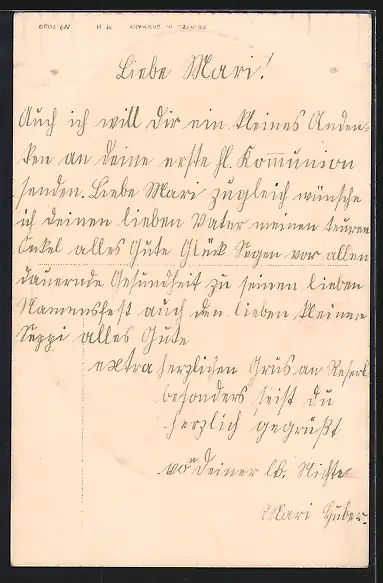 No 7099 M H PRINTED IN GERMANY
Liebe Mari!
Auch ich will Dir ein kleines Anden-
ken an deine erste hl. Kommunion
senden. Liebe Mari zugleich wünsche
ich deinen lieben Vater meinen teuren
Onkel alles Gute Glück Segen vor allen
dauernde Gesundheit zu seinen lieben
Namensfest auch den lieben kleinen
Seppi alles Gute
extra herzlichen Grus an Reserl
besonders seist du
herzlich gegrüßt
von deiner lb. Nichte
Mari Huber.